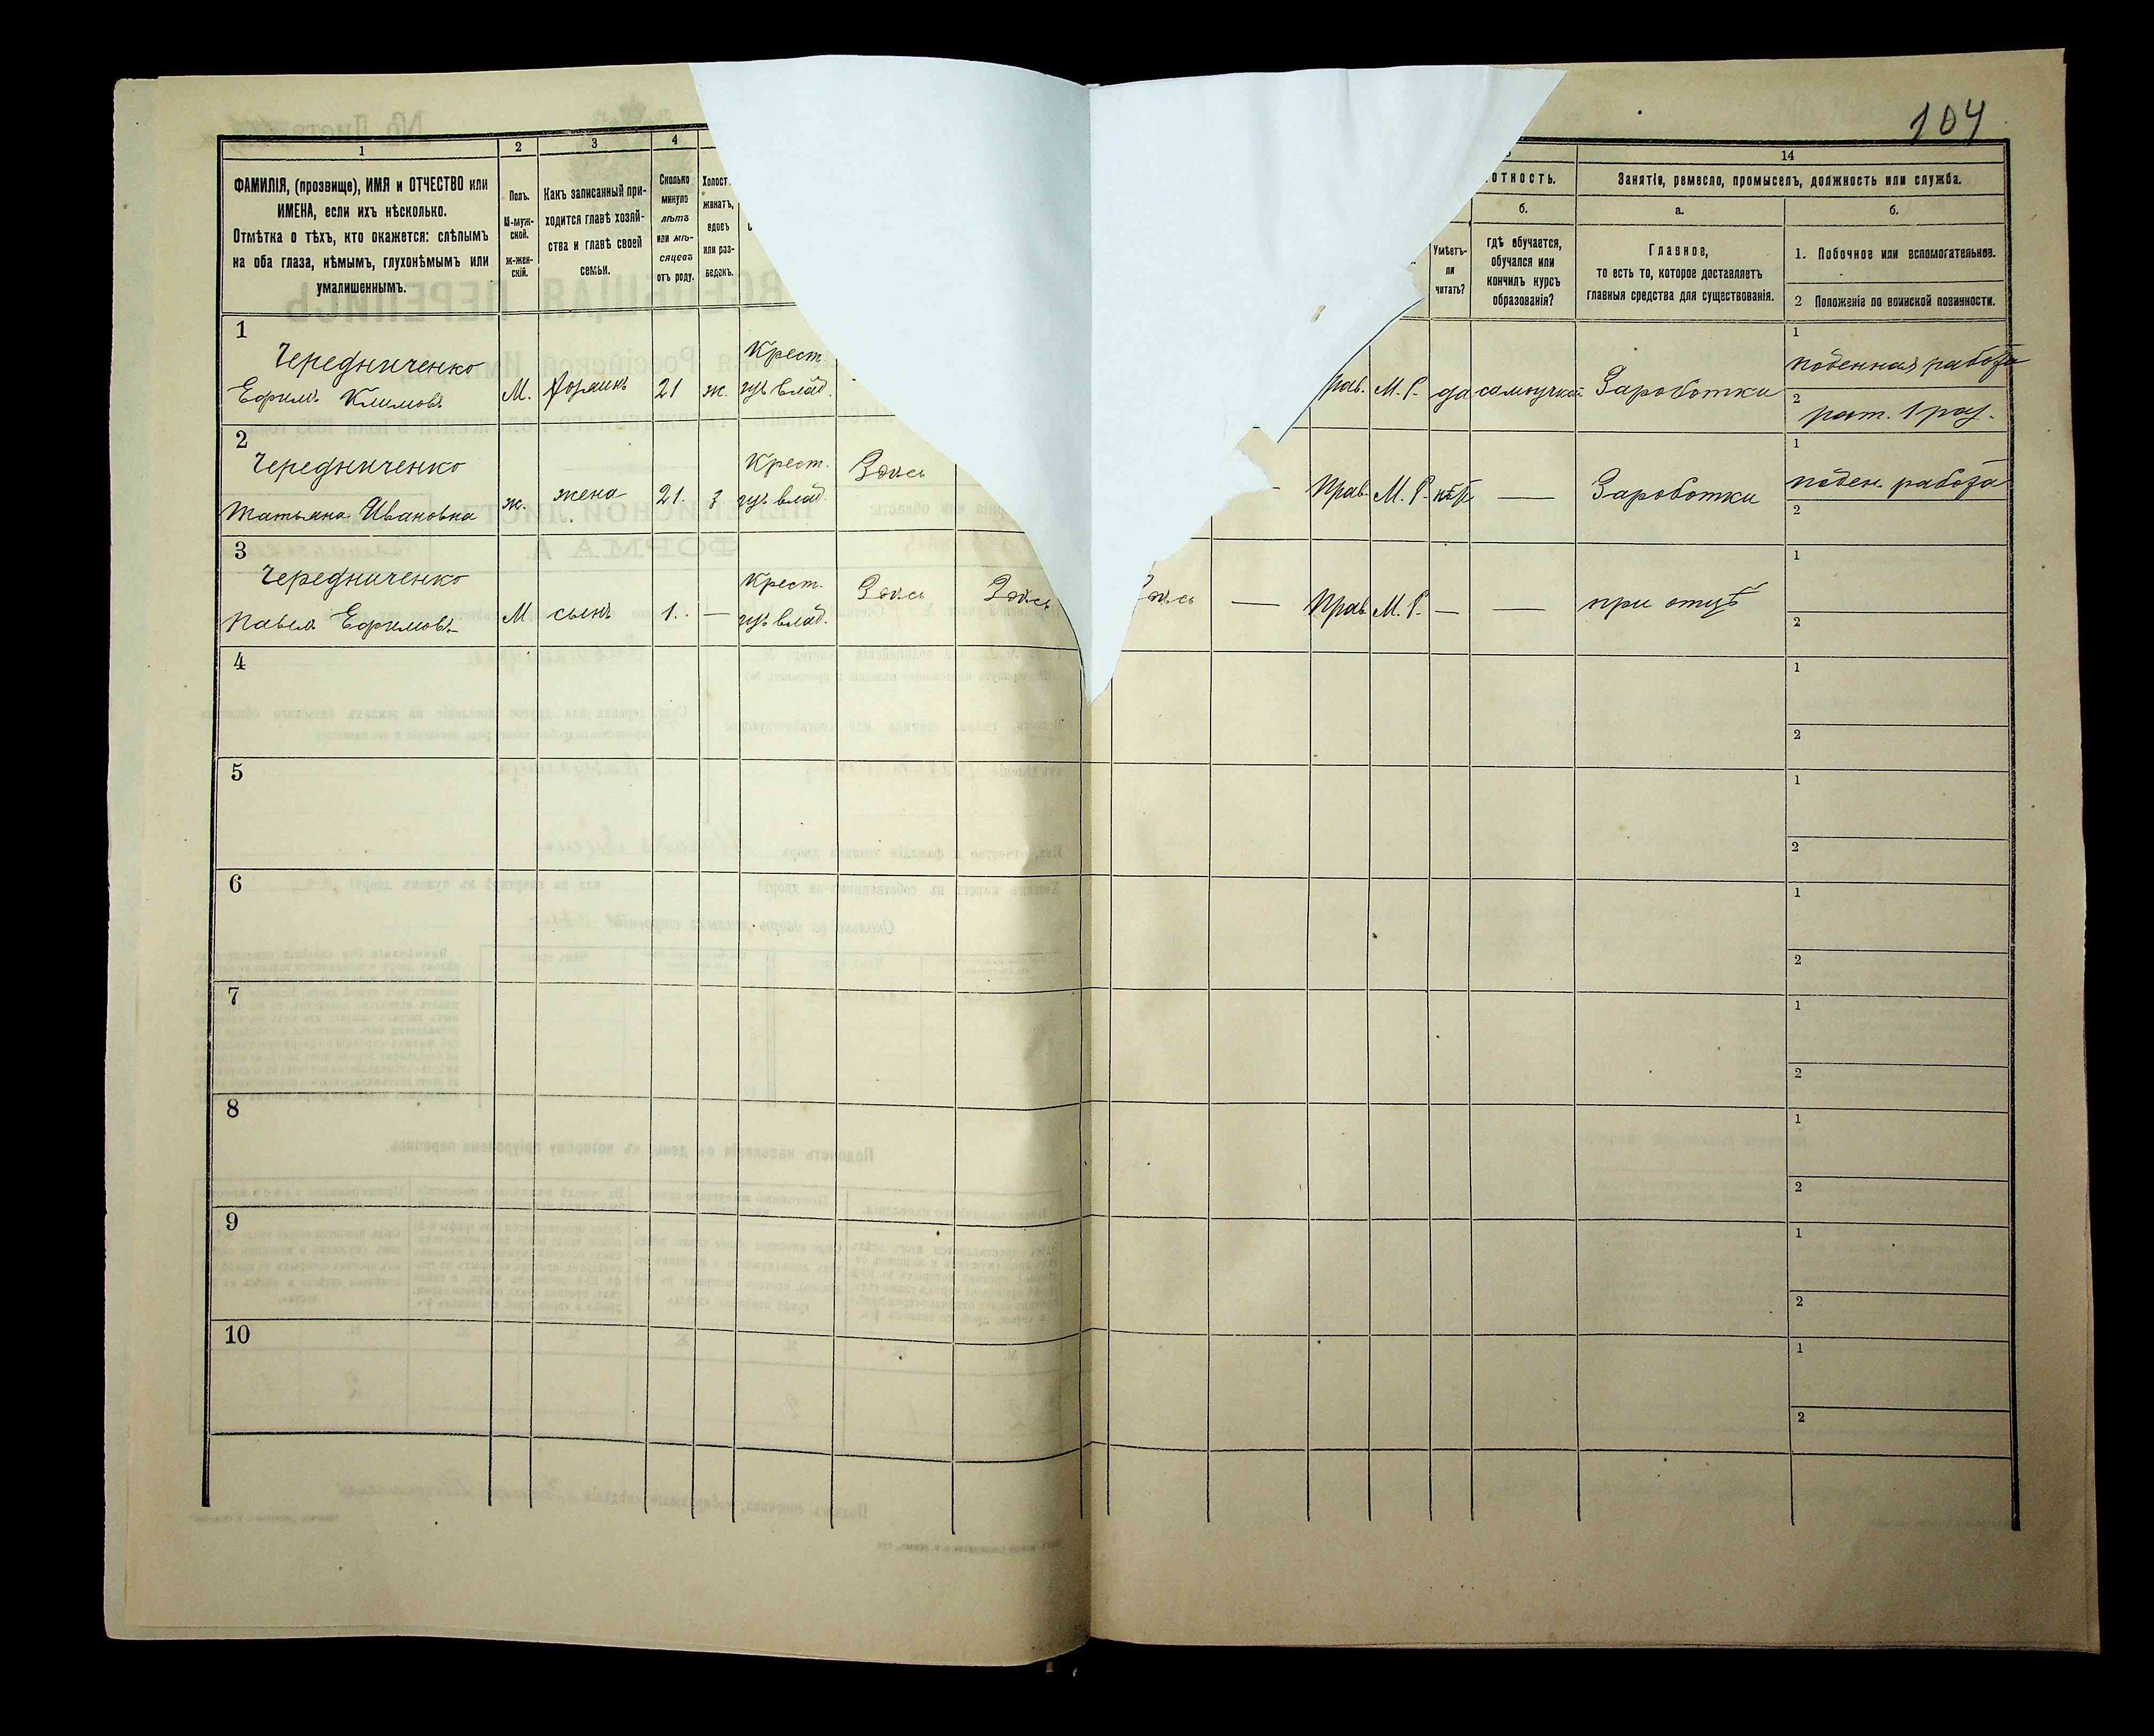 104
1
2
3
4
14
ФАМИЛІЯ, (прозвище), ИМЯ и ОТЧЕСТВО или
ИМЕНА, если ихъ нѣсколько.
Отмѣтка о тѣхъ, кто окажется: слѣпымъ
на оба глаза, нѣмымъ, глухонѣмымъ или
умалишеннымъ.
Полъ.
М-муж-
ской.
ж-жен-
скій.
Какъ записанный при-
ходится главѣ хозяй-
ства и главѣ своей
семьи.
Сколько
минуло
лѣтъ
или мѣ-
сяцевъ
отъ роду.
Холост,
женатъ,
вдовъ
или раз-
веденъ.
отность.
Умѣетъ-
ли
читать?
б.
гдѣ обучается,
обучался или
кончилъ курсъ
образованія?
Занятіе, ремесло, промыселъ, должность или служба.
а.
Главное,
то есть то, которое доставляетъ
главныя средства для существованія.
б.
1. Побочное или вспомогательное.
2 Положеніе по воинской повинности.
1
Чередниченко
Ефимъ Климовъ
М.
хозяинъ
21
ж.
Крест.
изъ влад.
рав.
М. Р.
да
самоучкой
Зароботки
1
поденная работа
2
рат. 1 раз.
2
Чередниченко
Татьяна Ивановна
ж.
жена
21.
з
Крест.
изъ влад.
Здѣсь
Прав.
М. Р.
нѣтъ
—
Зароботки
1
поден. работа
2
3
Чередниченко
Павелъ Ефимовъ
М
сынъ
1.
—
Крест.
изъ влад.
Здѣсь
Здѣсь
—
Прав.
М. Р.
—
—
при отцѣ
1
2
4
1
2
5
1
2
6
1
2
7
1
2
8
1
2
9
1
2
10
1
2